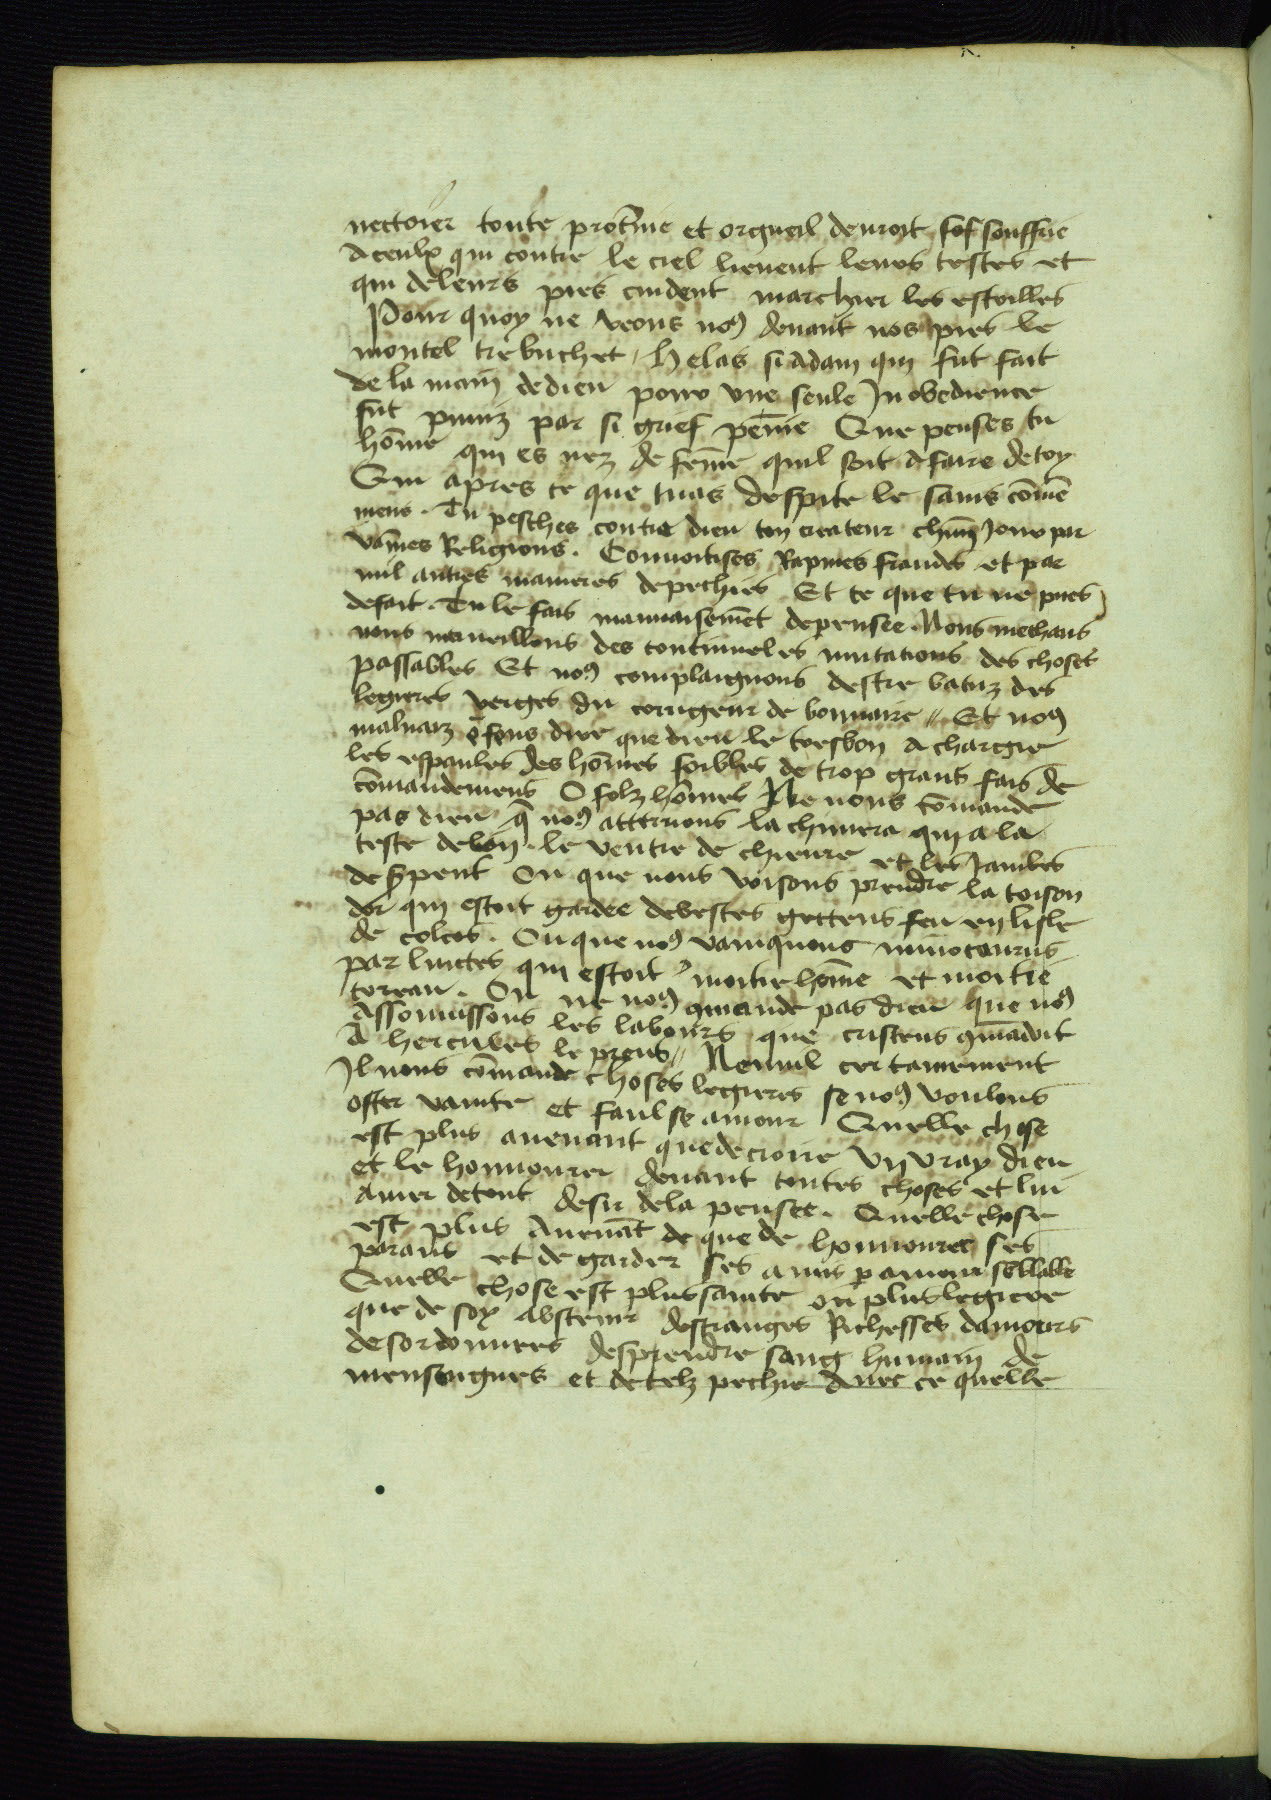 nectoier toute prot̄nie et orgueil deuroit souffrir
A ceulx qui contre le ciel lieuent leurs testes et
qui de leurs pies cuident marchier les estoilles
Pour quoy ne veons noꝯ deuant nos pies le
mortel trebuchet / helas si adam qui fut fait
de la main de dieu pour vne seule Inobedience
fut puniz par si grief pēnie Que penses tu
hōme qui es nez de fēme quil soit a faire de toy
Qui apres ce que tu as despite le sains cōmē
mens . Tu pesches contre dieu ton createur chūn Jour par
vaines Religions . Conuoitises Rapines fraudes et par
mil autres manieres de pechies Et ce que tu ne pues
de fait . Tu le fais mauuaisemēt de pensee . Nous mechans
nous merueillons des continueles mutations des choses
passables Et noꝯ complaignons destre batuz des
legieres verges du corrigeur de bonnaire // Et noꝯ
maluaiz osons dire que dieu le tresbon A chargie
les espaules des hōmes foibles de trop grans fais de
cōmandemens O folz hōmes Ne nous cōmande
pas dieu q̄ noꝯ atterrions la chimera qui a la
teste de lion . le ventre de chieure et les Jambes
de ẜpent Ou que nous voisons prendre la toison
dor qui estoit gardee de bestes gettens feu en lisle
de colcos . Ou que noꝯ vainquons minotaurus
par luictes qui estoit moitie hōme et moitie
toreau . Ou ne noꝯ ꝯmande pas dieu que noꝯ
Assouuissons les labours que cristeus ꝯmādoit
A hercules le preus // Nennil certainement
Il nous cōmande choses legieres se noꝯ voulons
oster vanite et faulse amour Quelle chose
est plus auenant que de croire vn vray dieu
et le honnourer deuant toutes choses et lui
amer de tout desir de la pensee . Quelle chose
est plus Auenāt de que de honnourer ses
parans et de garder ses amis ꝑ amour sēblable
Quelle chose est plus sainte ou plus legiere
que de soy abstenir destranges Richesses damours
desordonnees despendre sang humain de
mensongnes et de telz pechie Auec ce quelle